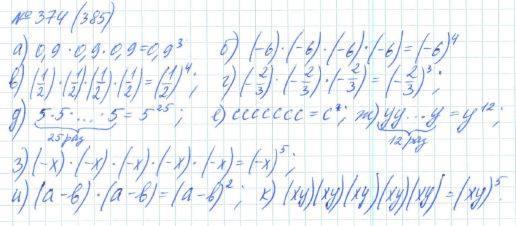 № 374 (385)
а) 0,9 · 0,9 · 0,9 = 0,9³ б) (-6) · (-6) · (-6) · (-6) = (-6)⁴
в) (1/2) · (1/2) (1/2) · (1/2) = (1/2)⁴; г) (-2/3) · (-2/3) · (-2/3) = (-2/3)³;
д) 5 · 5 · ... · 5 = 5²⁵; е) ccccccc = c⁷; ж) yy...y = y¹²;
25 раз 12 раз
з) (-x) · (-x) · (-x) · (-x) · (-x) = (-x)⁵;
и) (а - в) · (а - в) = (а - в)²; к) (xy)(xy)(xy)(xy)(xy) = (xy)⁵.